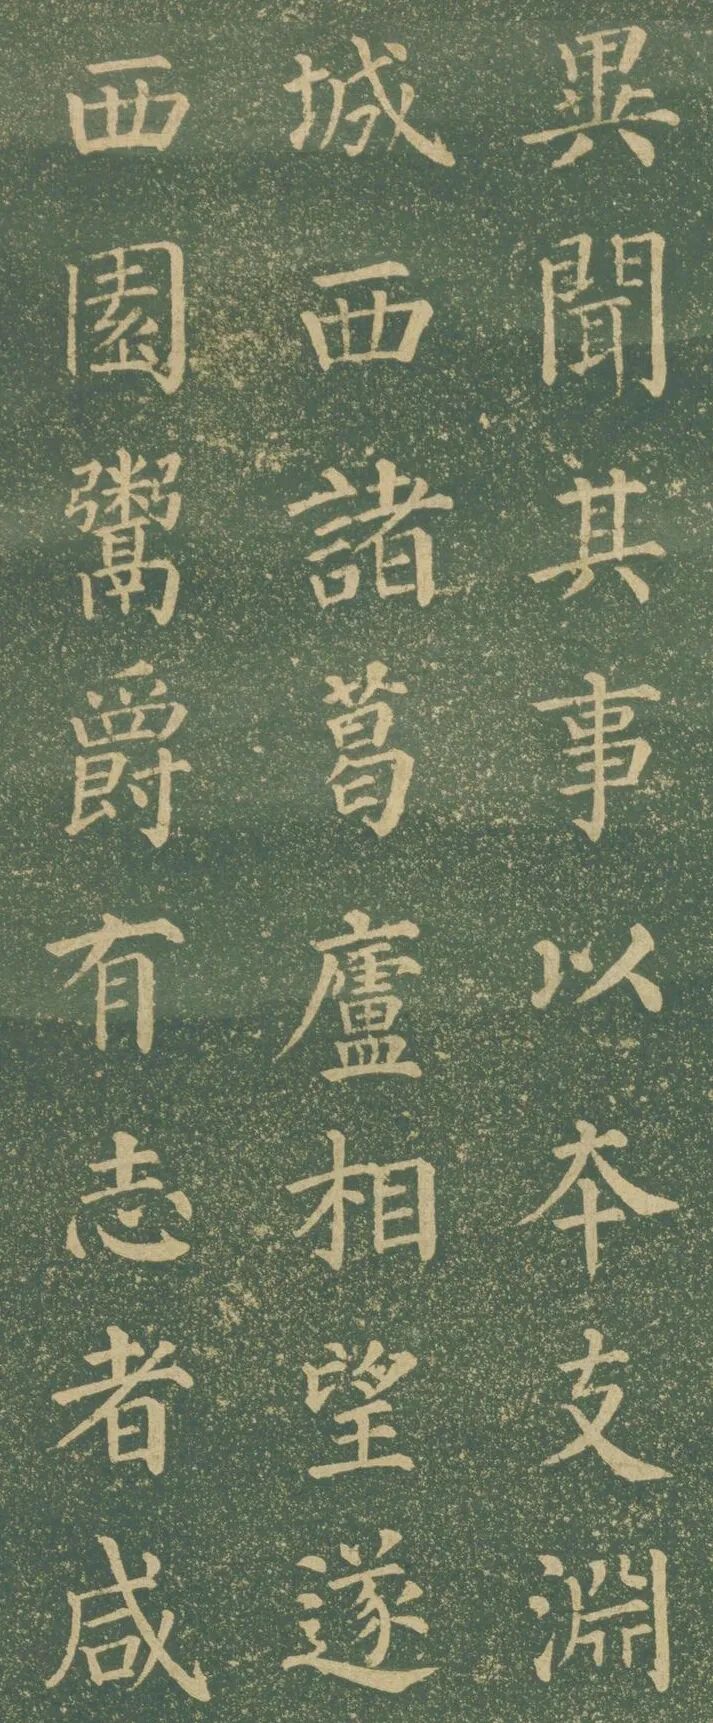 異聞其事以本支淵
城西諸葛廬相望遂
西園鬻爵有志者咸